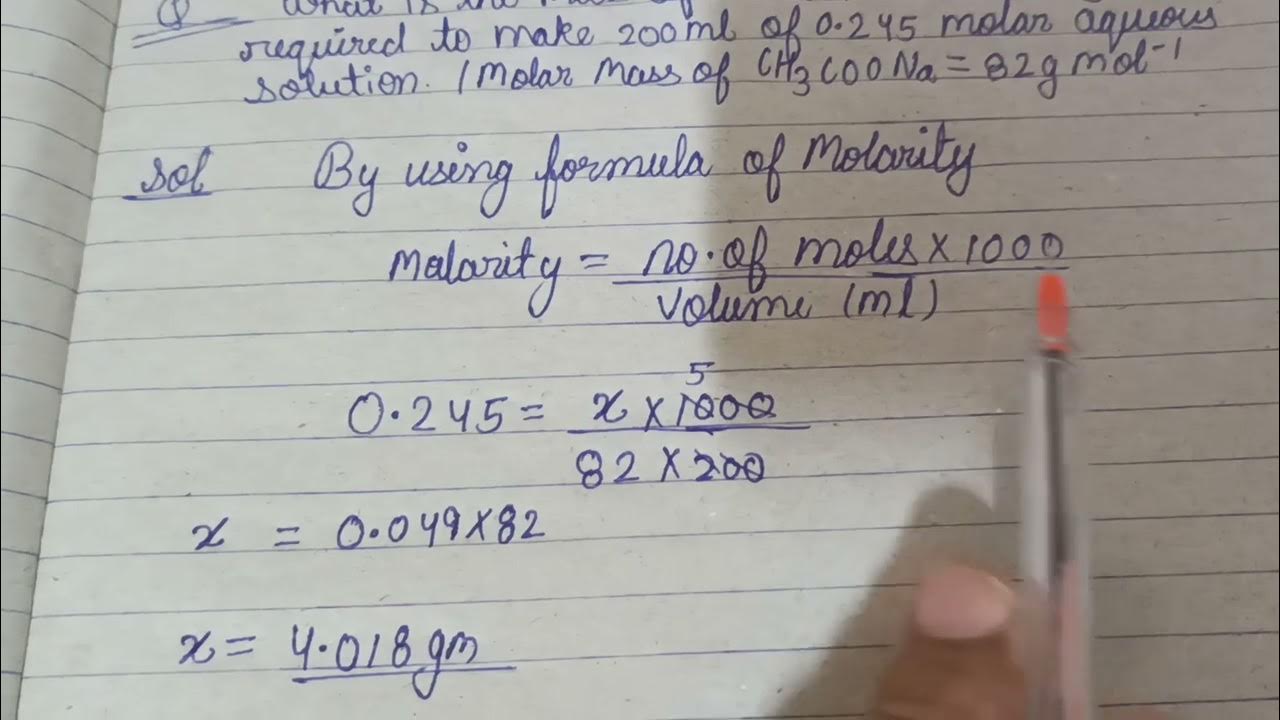 Q What is the
required to make 200ml of 0.245 molar aqueous
solution. / Molar mass of CH3COONa = 82g mol-1
Sol By using formula of Molarity
Malarity = no. of moles × 1000
volume (ml)
5
0.245 = x × 1000
82 × 200
x = 0.049 × 82
x = 4.018 gm